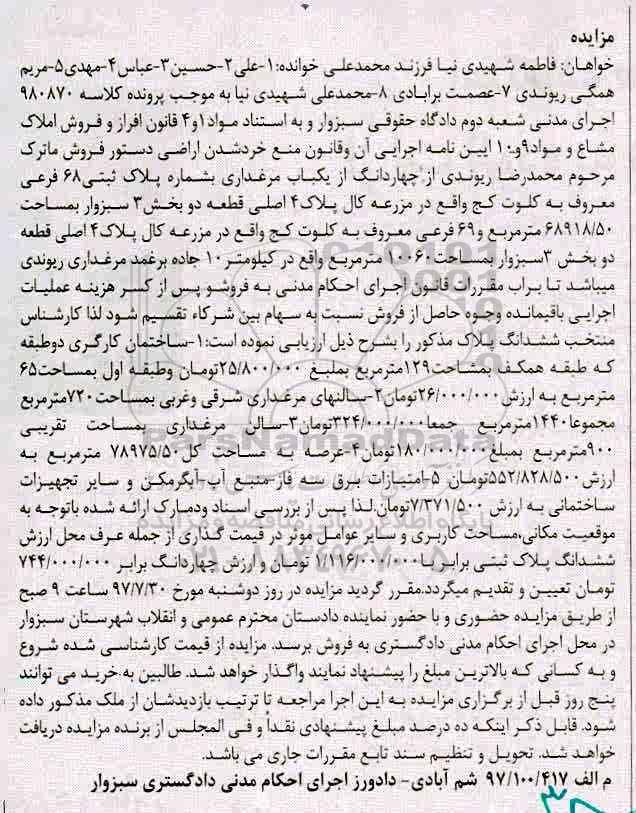 مزایده
خواهان: فاطمه شهیدی نیا فرزند محمدعلی خوانده:۱-علی۲-حسین۳-عباس۴-مهدی۵-مریم
همگی ریوندی ۷-عصمت برابادی ۸-محمدعلی شهیدی نیا به موجب پرونده کلاسه ۹۸۰۸۷۰
اجرای مدنی شعبه دوم دادگاه حقوقی سبزوار و به استناد مواد۱و۴ قانون افراز و فروش املاک
مشاع و مواد۹و۱۰ ایین نامه اجرایی آن وقانون منع خردشدن اراضی دستور فروش ماترک
مرحوم محمدرضا ریوندی از چهاردانگ از یکباب مرغداری بشماره پلاک ثبتی۶۸ فرعی
معروف به کلوت کج واقع در مزرعه کال پلاک۴ اصلی قطعه دو بخش۳ سبزوار بمساحت
۶۸۹۱۸/۵۰ مترمربع و۶۹ فرعی معروف به کلوت کج واقع در مزرعه کال پلاک۴ اصلی قطعه
دو بخش ۳سبزوار بمساحت۱۰۰۶۰ مترمربع واقع در کیلومتر۱۰ جاده برغمد مرغداری ریوندی
میباشد تا براب مقررات قانون اجرای احکام مدنی به فروشو پس از کسر هزینه عملیات
اجرایی باقیمانده وجوه حاصل از فروش نسبت به سهام بین شرکاء تقسیم شود لذا کارشناس
منتخب ششدانگ پلاک مذکور را بشرح ذیل ارزیابی نموده است:۱-ساختمان کارگری دوطبقه
که طبقه همکف بمشاحت۱۲۹مترمربع بمبلیغ ۲۵/۸۰۰/۰۰۰تومان وطبقه اول بمساحت۶۵
مترمربع به ارزش۲۶/۰۰۰/۰۰۰تومان۲-سالنهای مرغداری شرقی وغربی بمساحت۷۲۰مترمربع
مجموعا۱۴۴۰مترمربع جمعا۳۲۴/۰۰۰/۰۰۰تومان۳-سالن مرغداری بمساحت تقریبی
۹۰۰مترمربع بمبلغ۱۸۰/۰۰۰/۰۰۰تومان۴-عرصه به مساحت کل۷۸۹۷۵/۵۰ مترمربع به
ارزش۵۵۲/۸۲۸/۵۰۰تومان ۵-امتیازات برق سه فاز-منبع آب-آبگرمکن و سایر تجهیزات
ساختمانی به ارزش ۷/۳۷۱/۵۰۰تومان.لذا پس از بررسی اسناد ودمارک ارائه شده باتوجه به
موقعیت مکانی،مساحت کاربری و سایر عوامل موثر در قیمت گذاری از جمله عرف محل ارزش
ششدانگ پلاک ثبتی برابر با۱/۱۱۶/۰۰۰/۰۰۰ تومان و ارزش چهاردانگ برابر ۷۴۴/۰۰۰/۰۰۰
تومان تعیین و تقدیم میگردد.مقرر گردید مزایده در روز دوشنبه مورخ ۹۷/۷/۳۰ ساعت ۹ صبح
از طریق مزایده حضوری و با حضور نماینده دادستان محترم عمومی و انقلاب شهرستان سبزوار
در محل اجرای احکام مدنی دادگستری به فروش برسد. مزایده از قیمت کارشناسی شده شروع
و به کسانی که بالاترین مبلغ را پیشنهاد نمایند واگذار خواهد شد. طالبین به خرید می توانند
پنج روز قبل از برگزاری مزایده به این اجرا مراجعه تا ترتیب بازدیدشان از ملک مذکور داده
شود. قابل ذکر اینکه ده درصد مبلغ پیشنهادی نقداً و فی المجلس از برنده مزایده دریافت
خواهد شد. تحویل و تنظیم سند تابع مقررات جاری می باشد.
م الف ۹۷/۱۰۰/۴۱۷ شم آبادی- دادورز اجرای احکام مدنی دادگستری سبزوار
ParsNamadData
پایگاه اطلاع رسانی مناقصه و مزایده